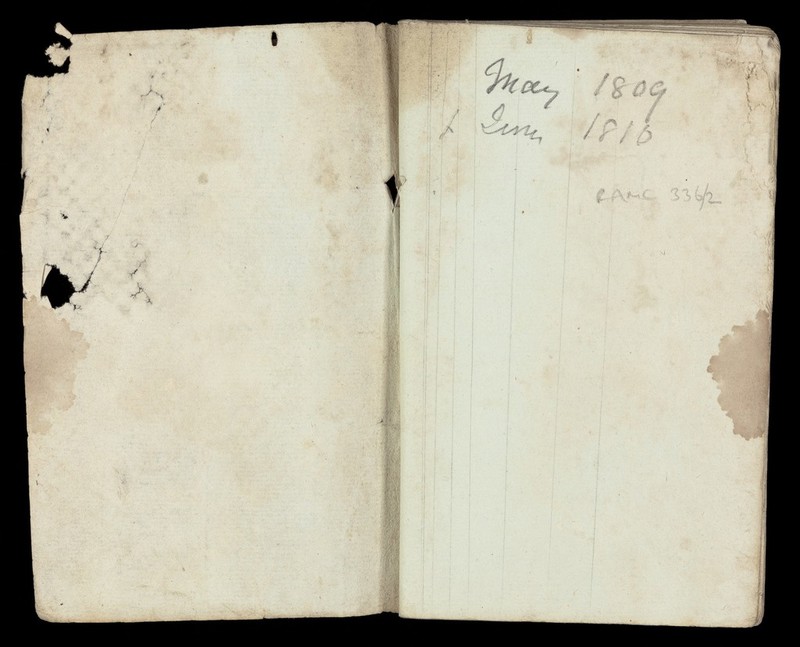 May 1809
+ June 1810
RAMC 336/2